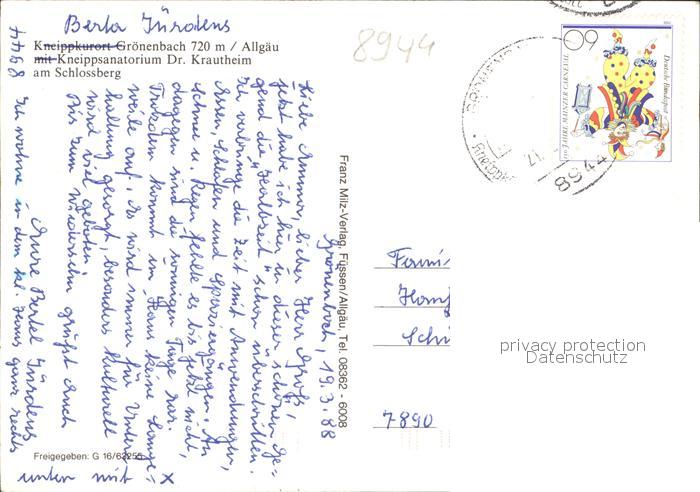 Berta Jürdens
Kneippkurort Grönenbach 720 m / Allgäu
mit Kneippsanatorium Dr. Krautheim
am Schlossberg
8944
8944
Grönenbach, 19.3.88
Liebe Ammon, lieber Herr Groß,
jetzt habe ich hier in dieser schönen Ge=
gend die "Halbzeit" schon überschritten.
Ich verbringe die Zeit mit Anwendungen,
Essen, Schlafen und Spaziergängen. An
Schnee u. Regen fehlte es bis jetzt nicht,
dagegen sind die sonnigen Tage rar.
Trotzdem kommt im Haus keine Lange=
weile auf. Es wird immer für Unter=
haltung gesorgt, besonders kulturell
wird viel geboten.
Bis zum Wiedersehn grüßt Euch
Eure Bertel Jürdens
Ich wohne in dem kl. Haus ganz rechts
unten mit X
Franz Milz-Verlag, Füssen/Allgäu, Tel. 08362 - 6008
Freigegeben: G 16/63255
Deutsche Bundespost
60
8944
21.
Kneipp
Fami
Schi
7890
privacy protection
Datenschutz